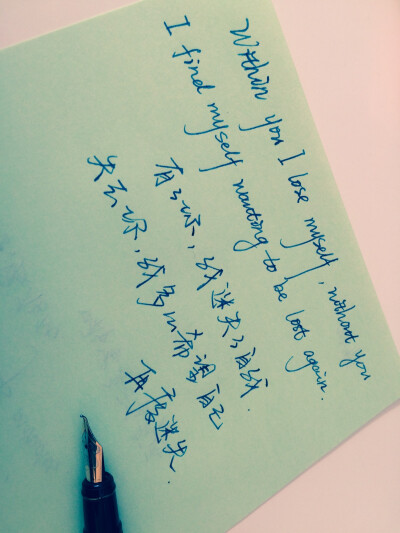 Within you I lose myself, without you
I find myself wanting to be lost again.
有了你，我迷失了自我.
失去你，我多么希望自己
再度迷失.